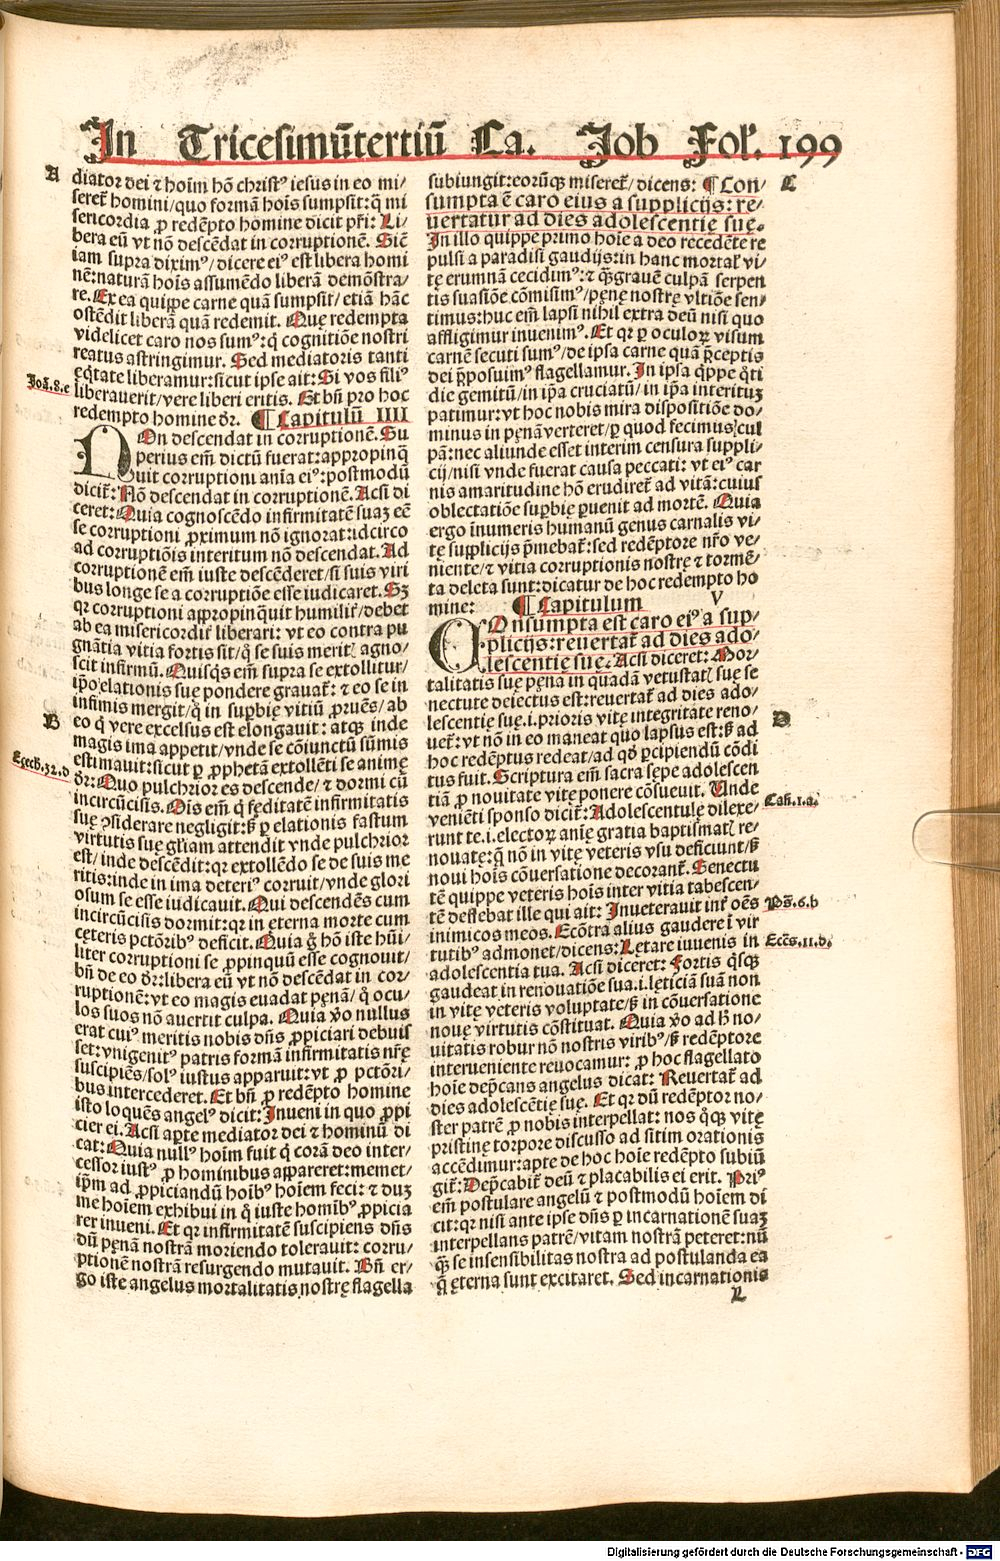 In Tricesimũtertiũ Ca. Job Fol'. 199
A
diator dei ⁊ hoĩm hõ christꝰ iesus in eo mi/
seret̃ homini/quo formã hoĩs sumpsit: q̃ mi
sericordia ꝓ redẽpto homine dicit pr̃i: Li/
bera eũ vt nõ descẽdat in corruptionẽ. Sicẽ
iam supra diximꝰ/dicere eiꝰ est libera homi
nẽ: naturã hoĩs assumẽdo liberã demõstra/
re. Ex ea quippe carne quã sumpsit/etiã hãc
ostẽdit liberã quã redemit. Quę redempta
videlicet caro nos sumꝰ: q̃ cognitiõe nostri
reatus astringimur. Sed mediatoris tanti
eq̃tate liberamur: sicut ipse ait: Si vos filiꝰ
Joã. 8. e
liberauerit/vere liberi eritis. Et bñ pro hoc
redempto homine dr̃. ¶ Capitulũ IIII
NOn descendat in corruptionẽ. Su
perius em̃ dictũ fuerat: appropinq̃
uit corruptioni anĩa eiꝰ: postmodũ
dicit̃: Nõ descendat in corruptionẽ. Acsi di
ceret: Quia cognoscẽdo infirmitatẽ suaꝫ eẽ
se corruptioni ꝓximum nõ ignorat: idcirco
ad corruptiõis interitum nõ descendat. Ad
corruptionẽ em̃ iuste descẽderet/si suis viri
bus longe se a corruptiõe esse iudicaret. Sꝫ
qꝛ corruptioni appropinq̃uit humilit̃/debet
ab ea misericordit̃ liberari: vt eo contra pu
gnãtia vitia fortis sit/q̃ se suis merit̃ agno/
scit infirmũ. Quisq̃s em̃ supra se extollitur/
ip̃o elationis suę pondere grauat̃: ⁊ eo se in
infimis mergit/q̃ in suꝑbię vitiũ ꝓruẽs/ab
B
eo q̃ vere excelsus est elongauit: atqꝫ inde
magis ima appetit/vnde se cõiunctũ sũmis
estimauit: sicut ꝑ ꝓphetã extollẽti se animę
Ezech. 32. d
dr̃: Quo pulchrior es descende/⁊ dormi cũ
incircũcisis. Ois em̃ q̃ fęditatẽ infirmitatis
suę ꝯsiderare negligit: sꝫ ꝑ elationis fastum
virtutis suę gl̃iam attendit vnde pulchrior
est/inde descẽdit: qꝛ extollẽdo se de suis me
ritis: inde in ima deteriꝰ corruit/vnde glori
osum se esse iudicauit. Qui descendẽs cum
incircũcisis dormit: qꝛ in eterna morte cum
cęteris pctõribꝰ deficit. Quia g̃ hõ iste hũi/
liter corruptioni se ꝓpinquũ esse cognouit/
bñ de eo dr̃: libera eũ vt nõ descẽdat in cor/
ruptionẽ: vt eo magis euadat pęnã/q̃ ocu/
los suos nõ auertit culpa. Quia v̊o nullus
erat cuiꝰ meritis nobis dñs ꝓpiciari debuis
set: vnigenitꝰ patris formã infirmitatis nr̃ę
suscipiẽs/solꝰ iustus apparuit: vt ꝓ pctõri/
bus intercederet. Et bñ ꝓ redẽpto homine
isto loquẽs angelꝰ dicit: Inueni in quo ꝓpi
cier ei. Acsi aꝑte mediator dei ⁊ hominũ di
cat: Quia nullꝰ hoĩm fuit q̃ corã deo inter/
cessor iustꝰ ꝓ hominibus appareret: memet/
ip̃m ad ꝓpiciandũ hoĩbꝰ hoĩem feci: ⁊ duꝫ
me hoĩem exhibui in q̃ iuste homĩbꝰ ꝓpicia
rer inueni. Et qꝛ infirmitatẽ suscipiens dñs
dũ pęnã nostrã moriendo tolerauit: corru/
ptionẽ nostrã resurgendo mutauit. Bñ er/
go iste angelus mortalitatis nostrę flagella
subiungit: eorũqꝫ miseret̃/dicens: ¶ Con/
C
sumpta ẽ caro eius a supplicijs: re/
uertatur ad dies adolescentię suę.
In illo quippe primo hoĩe a deo recedẽte re
pulsi a paradisi gaudijs: in hanc mortal̃ vi/
tę erumnã cecidimꝰ: ⁊ q̃grauẽ culpã serpen
tis suasiõe cõmisimꝰ/pęnę nostrę vltiõe sen/
timus: huc em̃ lapsi nihil extra deũ nisi quo
affligimur inuenimꝰ. Et qꝛ ꝑ oculoꝝ visum
carnẽ secuti sumꝰ/de ipsa carne quã p̃ceptis
dei p̃posuimꝰ flagellamur. In ipsa q̃ppe q̃ti
die gemitũ/in ip̃a cruciatũ/in ip̃a interituꝫ
patimur: vt hoc nobis mira dispositiõe do/
minus in pęnã verteret/ꝑ quod fecimus cul
pã: nec aliunde esset interim censura suppli/
cij/nisi vnde fuerat causa peccati: vt eiꝰ car
nis amaritudine hõ erudiret̃ ad vitã: cuius
oblectatiõe suꝑbię ꝑuenit ad mortẽ. Quia
ergo ĩnumeris humanũ genus carnalis vi/
tę supplicijs p̃mebat̃: sed redẽptore nr̃o ve/
niente/⁊ vitia corruptionis nostrę ⁊ tormẽ/
ta deleta sunt: dicatur de hoc redempto ho
mine: ¶ Capitulum V
COnsumpta est caro eiꝰ a sup/
plicijs: reuertat̃ ad dies ado/
lescentię suę. Acsi diceret: Mor/
talitatis suę pęna in quadã vetustat̃ suę se
nectute deiectus est: reuertat̃ ad dies ado/
lescentię suę. i. prioris vitę integritate reno/
D
uet̃: vt nõ in eo maneat quo lapsus est: sꝫ ad
hoc redẽptus redeat/ad qd̃ ꝑcipiendũ cõdi
tus fuit. Scriptura em̃ sacra sępe adolescen
tiã ꝓ nouitate vitę ponere cõsueuit. Unde
veniẽti sponso dicit̃: Adolescentulę dilexe/
Cañ. 1. a.
runt te. i. electoꝝ anĩę gratia baptismat̃ re/
nouatę: q̃ nõ in vitę veteris vsu deficiunt/sꝫ
noui hoĩs cõuersatione decorant̃. Senectu
tẽ quippe veteris hoĩs inter vitia tabescen/
tẽ deflebat ille qui ait: Inueterauit int̃ oẽs
Ps̃. 6. b
inimicos meos. Ecõtra alius gaudere ĩ vir
tutibꝰ admonet/dicens: Lętare iuuenis in
Eccs̃. 11. d.
adolescentia tua. Acsi diceret: Fortis q̃sqꝫ
gaudeat in renouatiõe sua. i. lęticiã suã non
in vitę veteris voluptate/sꝫ in cõuersatione
nouę virtutis cõstituat. Quia v̊o ad h̃ no/
uitatis robur nõ nostris viribꝰ/sꝫ redẽptore
interueniente reuocamur: ꝓ hoc flagellato
hoĩe dep̃cans angelus dicat: Reuertat̃ ad
dies adolescẽtię suę. Et qꝛ dũ redẽptor no/
ster patrẽ ꝓ nobis interpellat: nos q̃qꝫ vitę
pristinę torpore discusso ad sitim orationis
accẽdimur: apte de hoc hoĩe redẽpto subiũ
git̃: Dep̃cabit̃ deũ ⁊ placabilis ei erit. Priꝰ
em̃ postulare angelũ ⁊ postmodũ hoĩem di
cit: qꝛ nisi ante ipse dñs ꝑ incarnationẽ suaꝫ
interpellans patrẽ/vitam nostrã peteret: nũ
q̃ꝫ se insensibilitas nostra ad postulanda ea
q̃ ęterna sunt excitaret. Sed incarnationis
L
Digitalisierung gefördert durch die Deutsche Forschungsgemeinschaft - DFG